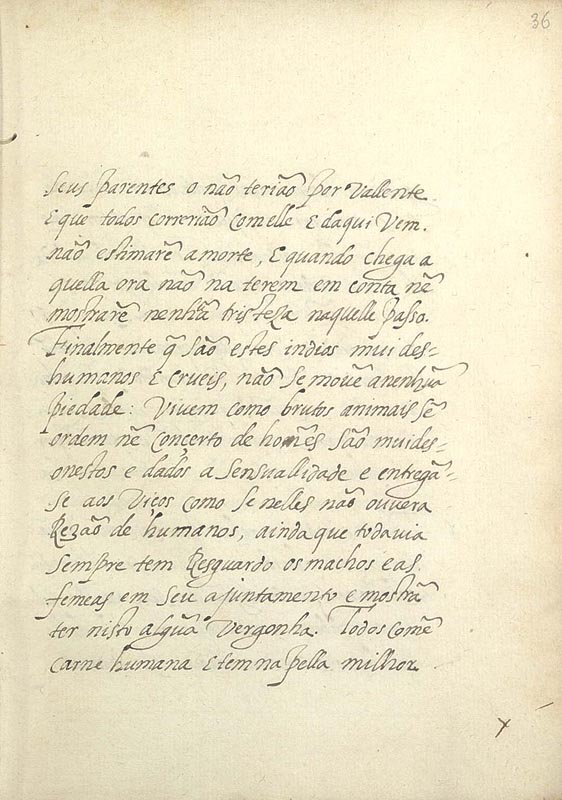 36
Seus parentes o não terião por Vallente
E que todos correrião com elle E daqui Vem.
não estimarẽ a morte, E quando chega a
quella ora não na terem em conta nẽ
mostrarẽ nenhũa tristeza naquelle passo.
Finalmente q̃ são estes indios mui des=
humanos E crueis, não se mouẽ a nenhũa
piedade: Viuem como brutos animais sẽ
ordem nẽ concerto de homẽs são mui des=
onestos e dados a sensuallidade e entregã=
se aos Vicos como se nelles não ouuera
Rezão de humanos, ainda que todauia
sempre tem Resguardo os machos e as
femeas em seu ajuntamento e mostrã
ter nisto algũa Vergonha. Todos comẽ
carne humana E tem na pella milhor